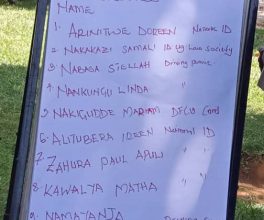 NAME
1. ARINITWE DOREEN National ID
2. NAKAKAZI SAMALI ID Ug Law society
3 NABAGA STELLAH Driving permit
4 NANKUNGU LINDA "
5 NAKIGUDDE MARIAM DFCU Card
6. ALITUBERA IDEEN National ID
7. ZAHURA PAUL APULI " "
8. KAWALYA MATHA " "
9 NAMAYANJA